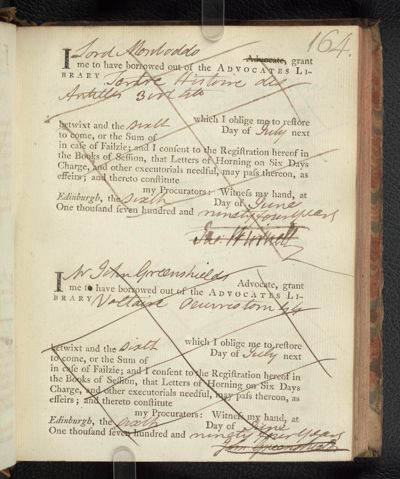 164.
I Lord Monboddo Advocate, grant
me to have borrowed out of the ADVOCATES LI-
BRARY Tertre Histoire des
Antilles 3 vol 4to
betwixt and the sixth which I oblige me to restore
to come, or the Sum of Day of July next
in case of Failzie; and I consent to the Registration hereof in
the Books of Session, that Letters of Horning on Six Days
Charge, and other executorials needful, may pass thereon, as
effeirs; and thereto constitute
my Procurators: Witness my hand, at
Edinburgh, the Sixth Day of June
One thousand seven hundred and ninety four years
I Mr John Greenshields Advocate, grant
me to have borrowed out of the ADVOCATES LI-
BRARY Voltaire 4to
betwixt and the sixth which I oblige me to restore
to come, or the Sum of Day of July next
in case of Failzie; and I consent to the Registration hereof in
the Books of Session, that Letters of Horning on Six Days
Charge, and other executorials needful, may pass thereon, as
effeirs; and thereto constitute
my Procurators: Witness my hand, at
Edinburgh, the sixth Day of June
One thousand seven hundred and ninety four years
John Greenshields